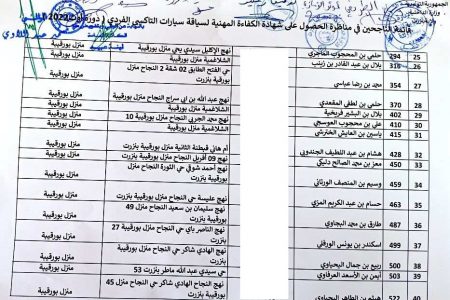 الجمهورية التونسية
وزارة
قائمة الناجحين في مناظرة الحصول على شهادة الكفاءة المهنية لسياقة سيارات التاكسي الفردي ( دورة أوت 2022 )
25 294 حلمي بن محجوب الماجري نهج الإقليل سيدي يحي منزل بورقيبة منزل بورقيبة
26 316 بلال بن عبد القادر بن زينب الشلاغمية منزل بورقيبة منزل بورقيبة
27 354 محمد بن رضا عباسي حي الفتح الطابق 02 شقة 2 النجاح منزل بورقيبة بنزرت منزل بورقيبة
28 370 حلمي بن لطفي المقعدي نهج عبد الله بن ابي سراج النجاح منزل بورقيبة
29 402 بلال بن البشير فريخية الشلاغمية منزل بورقيبة منزل بورقيبة
30 410 علي بن محجوب العوسجي نهج محمد الجربي النجاح منزل بورقيبة 10 منزل بورقيبة
31 415 ياسين بن العايش الشلاغمية منزل بورقيبة منزل بورقيبة
32 428 هشام بن عبد اللطيف الجندوبي أم هاني الثانية منزل بورقيبة بنزرت منزل بورقيبة
33 450 معز بن محمد الصالح نهج 09 أفريل النجاح منزل بورقيبة بنزرت منزل بورقيبة
34 459 وسيم بن المنصف الورتاني نهج أحمد شوقي حي الثورة النجاح منزل بورقيبة بنزرت منزل بورقيبة
35 463 حسام بن عبد الكريم المزي نهج عليسة حي النجاح منزل بورقيبة بنزرت منزل بورقيبة
36 487 طارق بن محمد البجاوي نهج سليمان بن سعيد النجاح 49 منزل بورقيبة بنزرت منزل بورقيبة
37 499 اسكندر بن يونس الورفلي نهج الناصر باي حي النجاح 27 منزل بورقيبة بنزرت منزل بورقيبة
38 500 ربيع بن جمال اليحياوي نهج الهادي شاكر حي النجاح منزل بورقيبة بنزرت منزل بورقيبة
39 503 أيمن بن الأسعد العرفاوي حي سيدي عبد الله ماطر بنزرت 53 منزل بورقيبة
40 522 هيثم بن الطاهر نهج النجاح الهادي شاكر حي النجاح 45 منزل بورقيبة بنزرت منزل بورقيبة